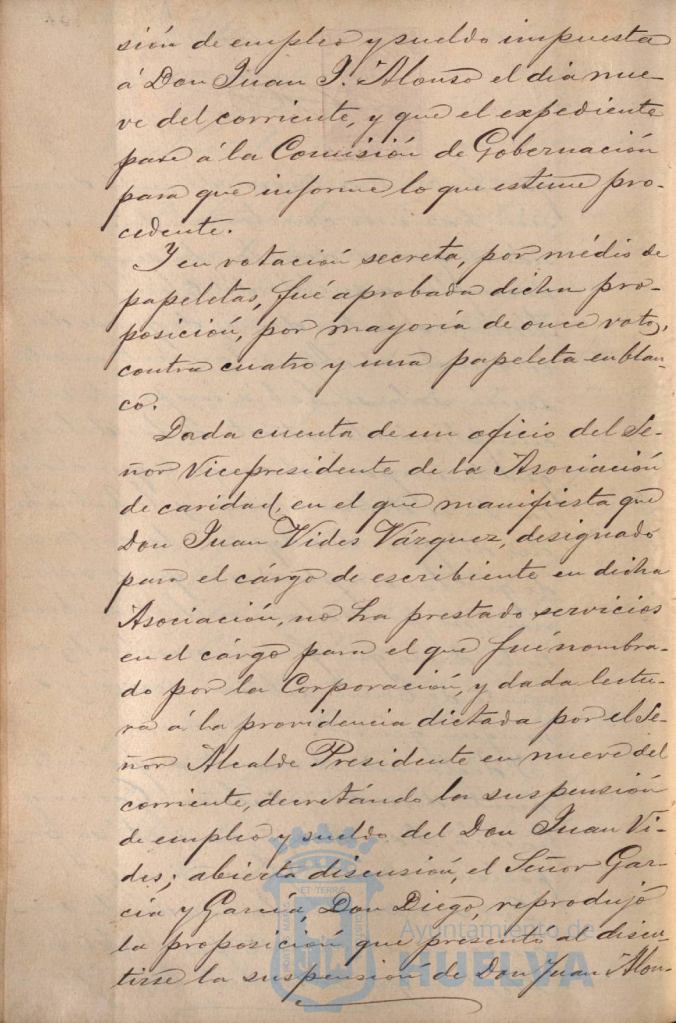 sión de empleo y sueldo impuesta
á Don Juan J. Alonso el dia nue-
ve del corriente, y que el expediente
pase á la Comisión de Gobernación
para que informe lo que estime pro-
cedente.
Y en votación secreta, por médio de
papeletas, fué aprobada dicha pro-
posición, por mayoría de once votos,
contra cuatro y una papeleta en blan-
co.
Dada cuenta de un oficio del Se-
ñor Vicepresidente de la Asociación
de caridad, en el que manifiesta que
Don Juan Vides Vázquez, designado
para el cárgo de escribiente en dicha
Asociación, no ha prestado servicios
en el cárgo para el que fué nombra-
do por la Corporación, y dada lectu-
ra á la providencia dictada por el Se-
ñor Alcalde Presidente en nueve del
corriente, decretándo la suspensión
de empleo y sueldo del Don Juan Vi-
des; abierta discusión, el Señor Gar-
cía y García, Don Diego, reprodujo
la proposición que presentó al discu-
tirse la suspensión de Don Juan Alon-
Ayuntamiento de
HUELVA